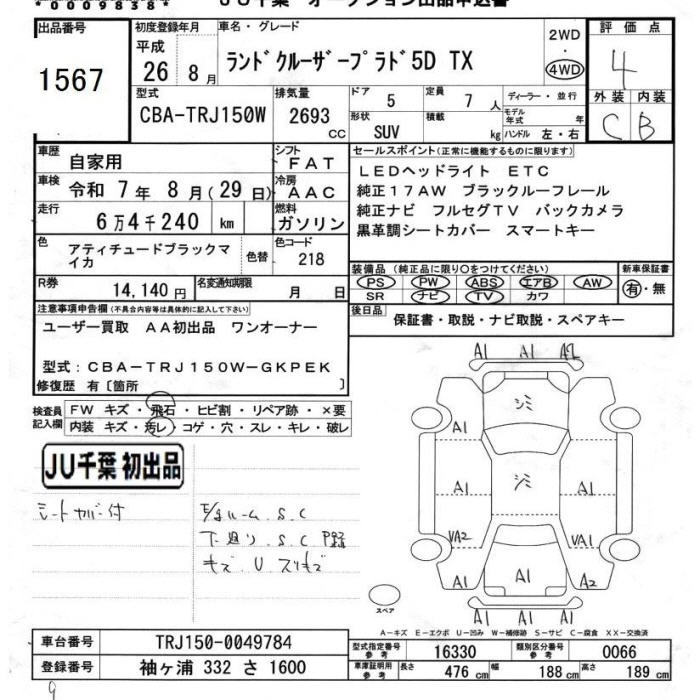 *00098838*
JU千葉 オークション出品申込書
出品番号 1567
初度登録年月 平成 26年 8月
車名・グレード ランドクルーザープラド5D TX
2WD・4WD
評価点 4
外装 C 内装 B
型式 CBA-TRJ150W
排気量 2693 CC
ドア 5 定員 7 人
形状 SUV 積載 kg
ディーラー・並行
モデル年式 年
ハンドル 左・右
車歴 自家用
シフト FAT
車検 令和 7年 8月(29日)
冷房 AAC
走行 6万4千240 km
燃料 ガソリン
色 アティチュードブラックマイカ 色替
色コード 218
R券 14,140円
名変通知期限 月 日
セールスポイント(正常に機能するものに限ります)
LEDヘッドライト ETC
純正17AW ブラックルーフレール
純正ナビ フルセグTV バックカメラ
黒革調シートカバー スマートキー
装備品(純正品に限り○をつけてください)
PS PW ABS エアB AW
SR ナビ TV カワ
新車保証書 有・無
後日品 保証書・取説・ナビ取説・スペアキー
注意事項申告欄(不具合内容等は具体的に記入して下さい)
ユーザー買取 AA初出品 ワンオーナー
型式:CBA-TRJ150W-GKPEK
修復歴 有〔箇所 〕
検査員記入欄
FW キズ・飛石・ヒビ割・リペア跡・×要
内装 キズ・汚レ・コゲ・穴・スレ・キレ・破レ
JU千葉 初出品
シートカバー付
S.C
下廻り S.C
キズ U スリキズ
A1 A1 A2
シミ
A1 A1
A1 シミ A1
VA2 VA1
A1 A1 A2
A1 A1 A1
スペア
A-キズ E-エクボ U-凹み W-補修跡 S-サビ C-腐食 XX-交換済
車台番号 TRJ150-0049784
登録番号 袖ヶ浦 332 さ 1600
型式指定番号 参考 16330
類別区分番号 参考 0066
車庫証明用 参考 長さ 476 cm 幅 188 cm 高さ 189 cm
9